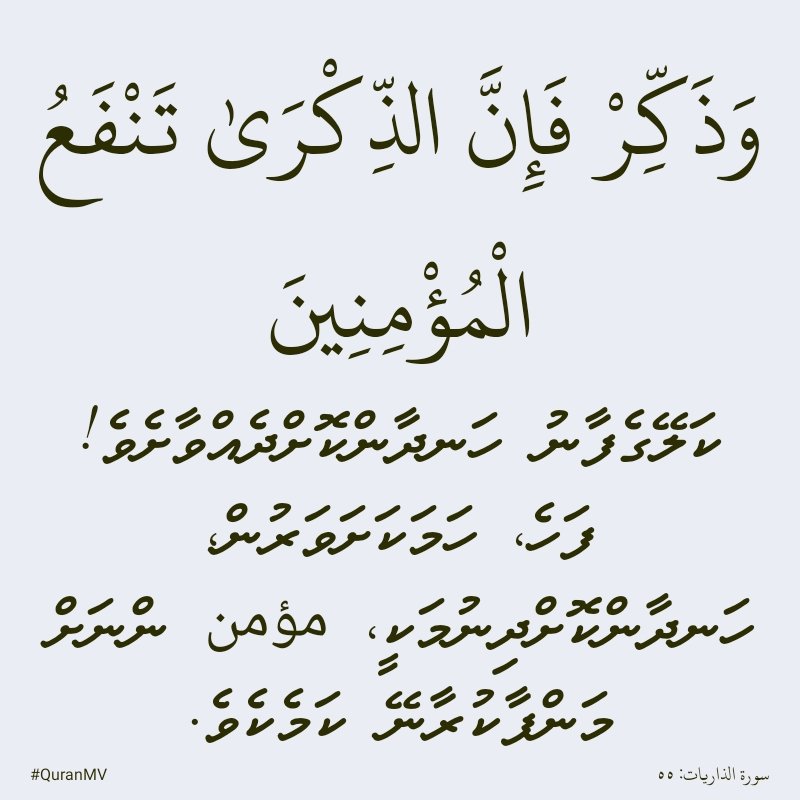 وَذَكِّرْ فَإِنَّ الذِّكْرَىٰ تَنْفَعُ
الْمُؤْمِنِينَ
ކަލޭގެފާނު ހަނދާންކޮށްދެއްވާށެވެ!
ފަހެ، ހަމަކަށަވަރުން،
ހަނދާންކޮށްދިނުމަކީ، مؤمن ންނަށް
މަންފާކުރާނޭ ކަމެކެވެ.
#QuranMV
سورة الذاريات: ٥٥